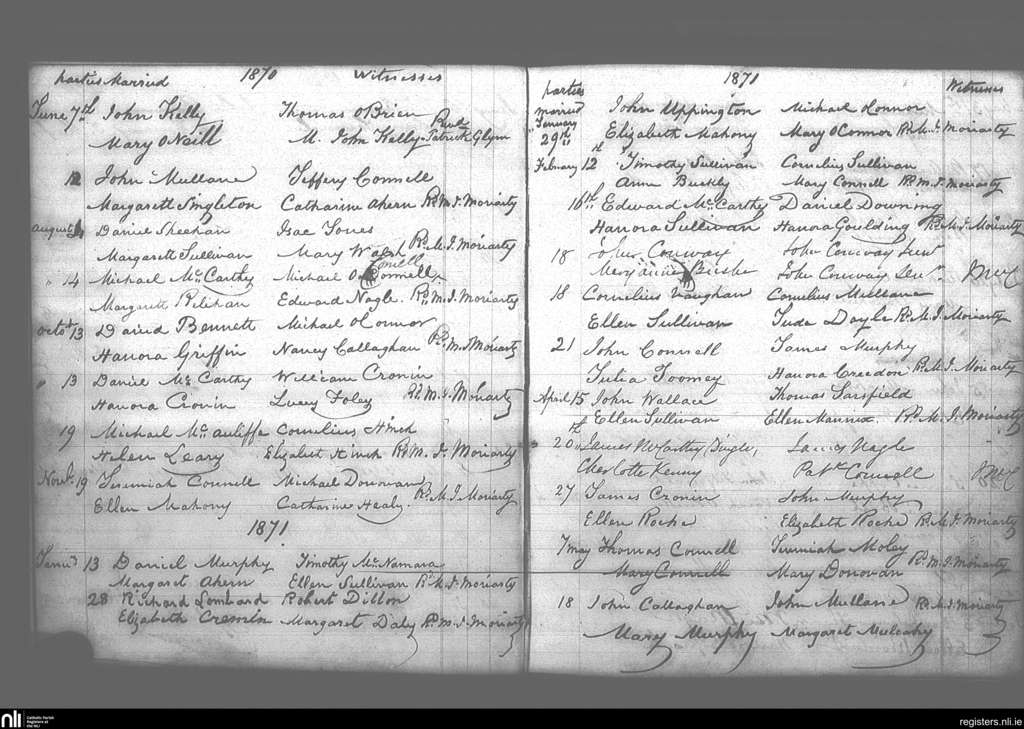 parties Married 1870 Witnesses
June 7th John Kelly Thomas OBrien Revd
Mary ONeill M. John Kelly Patrick Glynn
12 John Mullane Jeffery Connell
Margarett Singleton Catharine Ahern Rd M. J. Moriarty
August Daniel Sheehan Isac Jones
Margarett Sullivan Mary Walsh Rd M. J. Moriarty
" 14 Michael McCarthy Michael OConnell
Margarett Relihan Edward Nagle. Rd M. J. Moriarty
Octor 13 David Bennett Michael OConnor
Hanora Griffin Nancy Callaghan Rd M. J. Moriarty
" 13 Daniel McCarthy William Cronin
Hanora Cronin Lucey Foley Rd M. J. Moriarty
19 Michael Mcauliffe Cornelius Hinch
Helen Leary Elizabeth Hinch Rd M. J. Moriarty
Novr 19 Jeremiah Connell Michael Donovan
Ellen Mahony Catharine Healy. Rd M. J. Moriarty
1871
Janu 13 Daniel Murphy Timothy McNamara
Margaret Ahern Ellen Sullivan Rd M. J. Moriarty
28 Richard Lombard Robert Dillon
Elizabeth Cremin Margaret Daly Rd M. J. Moriarty
1871
parties married Witnesses
January 29th John Uppington Michael OConnor
Elizabeth Mahony Mary OConnor Rd M. J. Moriarty
February 12 Timothy Sullivan Cornelius Sullivan
Ann Buckly Mary Connell Rd M. J. Moriarty
16th Edward McCarthy Daniel Downing
Hanora Sullivan Hanora Goulding Rd M. J. Moriarty
18 John Conway John Conway Junr
Mary John Conway Senr
18 Cornelius Vaughan Cornelius Mullane
Ellen Sullivan Jude Doyle Rd M. J. Moriarty
21 John Connell James Murphy
Julia Toomey Hanora Creedon Rd M. J. Moriarty
April 15 John Wallace Thomas Sarsfield
Ellen Sullivan Ellen Mannix. Rd M. J. Moriarty
20th James McCarthy James Nagle
Charlotte Kenny Patk Connell
27 James Cronin John Murphy
Ellen Roche Elizabeth Roche Rd M. J. Moriarty
7 May Thomas Connell Jeremiah Moley
Mary Connell Mary Donovan Rd M. J. Moriarty
18 John Callaghan John Mullane Rd M. J. Moriarty
Mary Murphy Margaret Mulcahy
nli Catholic Parish
Registers at
the NLI
registers.nli.ie